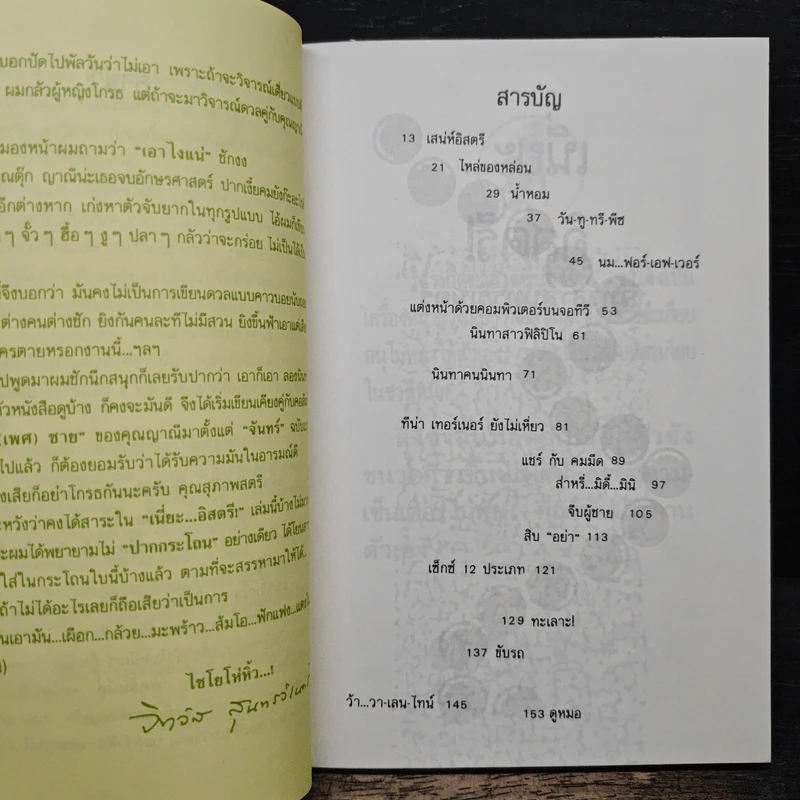 บอกปัดไปพัลวันว่าไม่เอา เพราะถ้าจะวิจารณ์เดี่ยวแบบนี้
ผมกลัวผู้หญิงโกรธ แต่ถ้าจะมาวิจารณ์ดวลคู่กับคุณญาณี
มองหน้าผมถามว่า "เอาไงแน่" ชักงง
ญาณีน่ะเธอจบอักษรศาสตร์ ปากเงี้ยคมยังก๊ะอะไร
อีกต่างหาก เก่งหาตัวจับยากในทุกรูปแบบ ไอ้ผมก็
ๆ จั๊ว ๆ ฮื้อ ๆ งู ๆ ปลา ๆ กลัวว่าจะกร่อย ไม่เป็นได้
ก็จึงบอกว่า มันคงไม่เป็นการเขียนดวลแบบคาวบอย
ต่างคนต่างชัก ยิงกันคนละทีไม่มีสวน ยิงขึ้นฟ้าเอา
ครตายหรอกงานนี้...ๆลๆ
ปพูดมาผมชักนึกสนุกก็เลยรับปากว่า เอาก็เอา ลอง
ตัวหนังสือดูบ้าง ก็คงจะมันดี จึงได้เริ่มเขียนเคียงคู่กับ
(เพศ) ชาย" ของคุณญาณีมาตั้งแต่ "จันทร์"
ไปแล้ว ก็ต้องยอมรับว่าได้รับความมันในอารมณ์ดี
งเสียก็อย่าโกรธกันนะครับ คุณสุภาพสตรี
ะหวังว่าคงได้สาระใน "เนี่ยะ...อิสตรี!" เล่มนี้บ้าง
ะผมได้พยายามไม่ "ปากกระโถน" อย่างเดียว ได้
ใส่ในกระโถนใบนี้บ้างแล้ว ตามที่จะสรรหามาให้ได้...
ถ้าไม่ได้อะไรเลยก็ถือเสียว่าเป็นการ
นเอามัน...เผือก...กล้วย...มะพร้าว...ส้มโอ...ฟักแฟง...
ไชโยโห่หิ้ว...!
สารบัญ
13 เสน่ห์อิสตรี
21 ไหล่ของหล่อน
29 น้ำหอม
37 วัน-ทู-ทรี-พีซ
45 นม...ฟอร์-เอฟ-เวอร์
แต่งหน้าด้วยคอมพิวเตอร์บนจอทีวี 53
นินทาสาวฟิลิปิโน 61
นินทาคนนินทา 71
ทีน่า เทอร์เนอร์ ยังไม่เหี่ยว 81
แชร์ กับ คมมีด 89
ส่าหรี่...มิดี้...มินิ 97
จีบผู้ชาย 105
สิบ "อย่า" 113
เซ็กซ์ 12 ประเภท 121
129 ทะเลาะ!
137 ขับรถ
ว้า...วา-เลน-ไทน์ 145
153 ดูหมอ